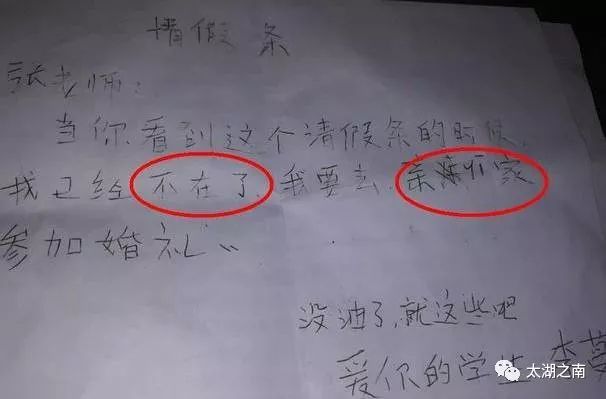 请假条
张老师:
当你看到这个清假条的时候,
我已经不在了,我要去,亲戚家
参加婚礼。
没油了,就这些吧
爱你的学生 李
太湖之南